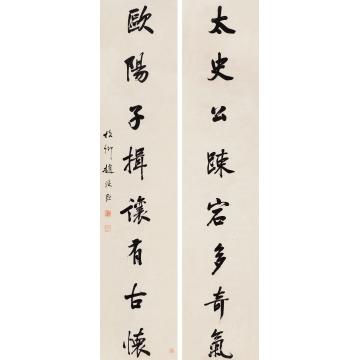 太史公踈宕多奇氣
歐陽子揖讓有古懷
卿趙